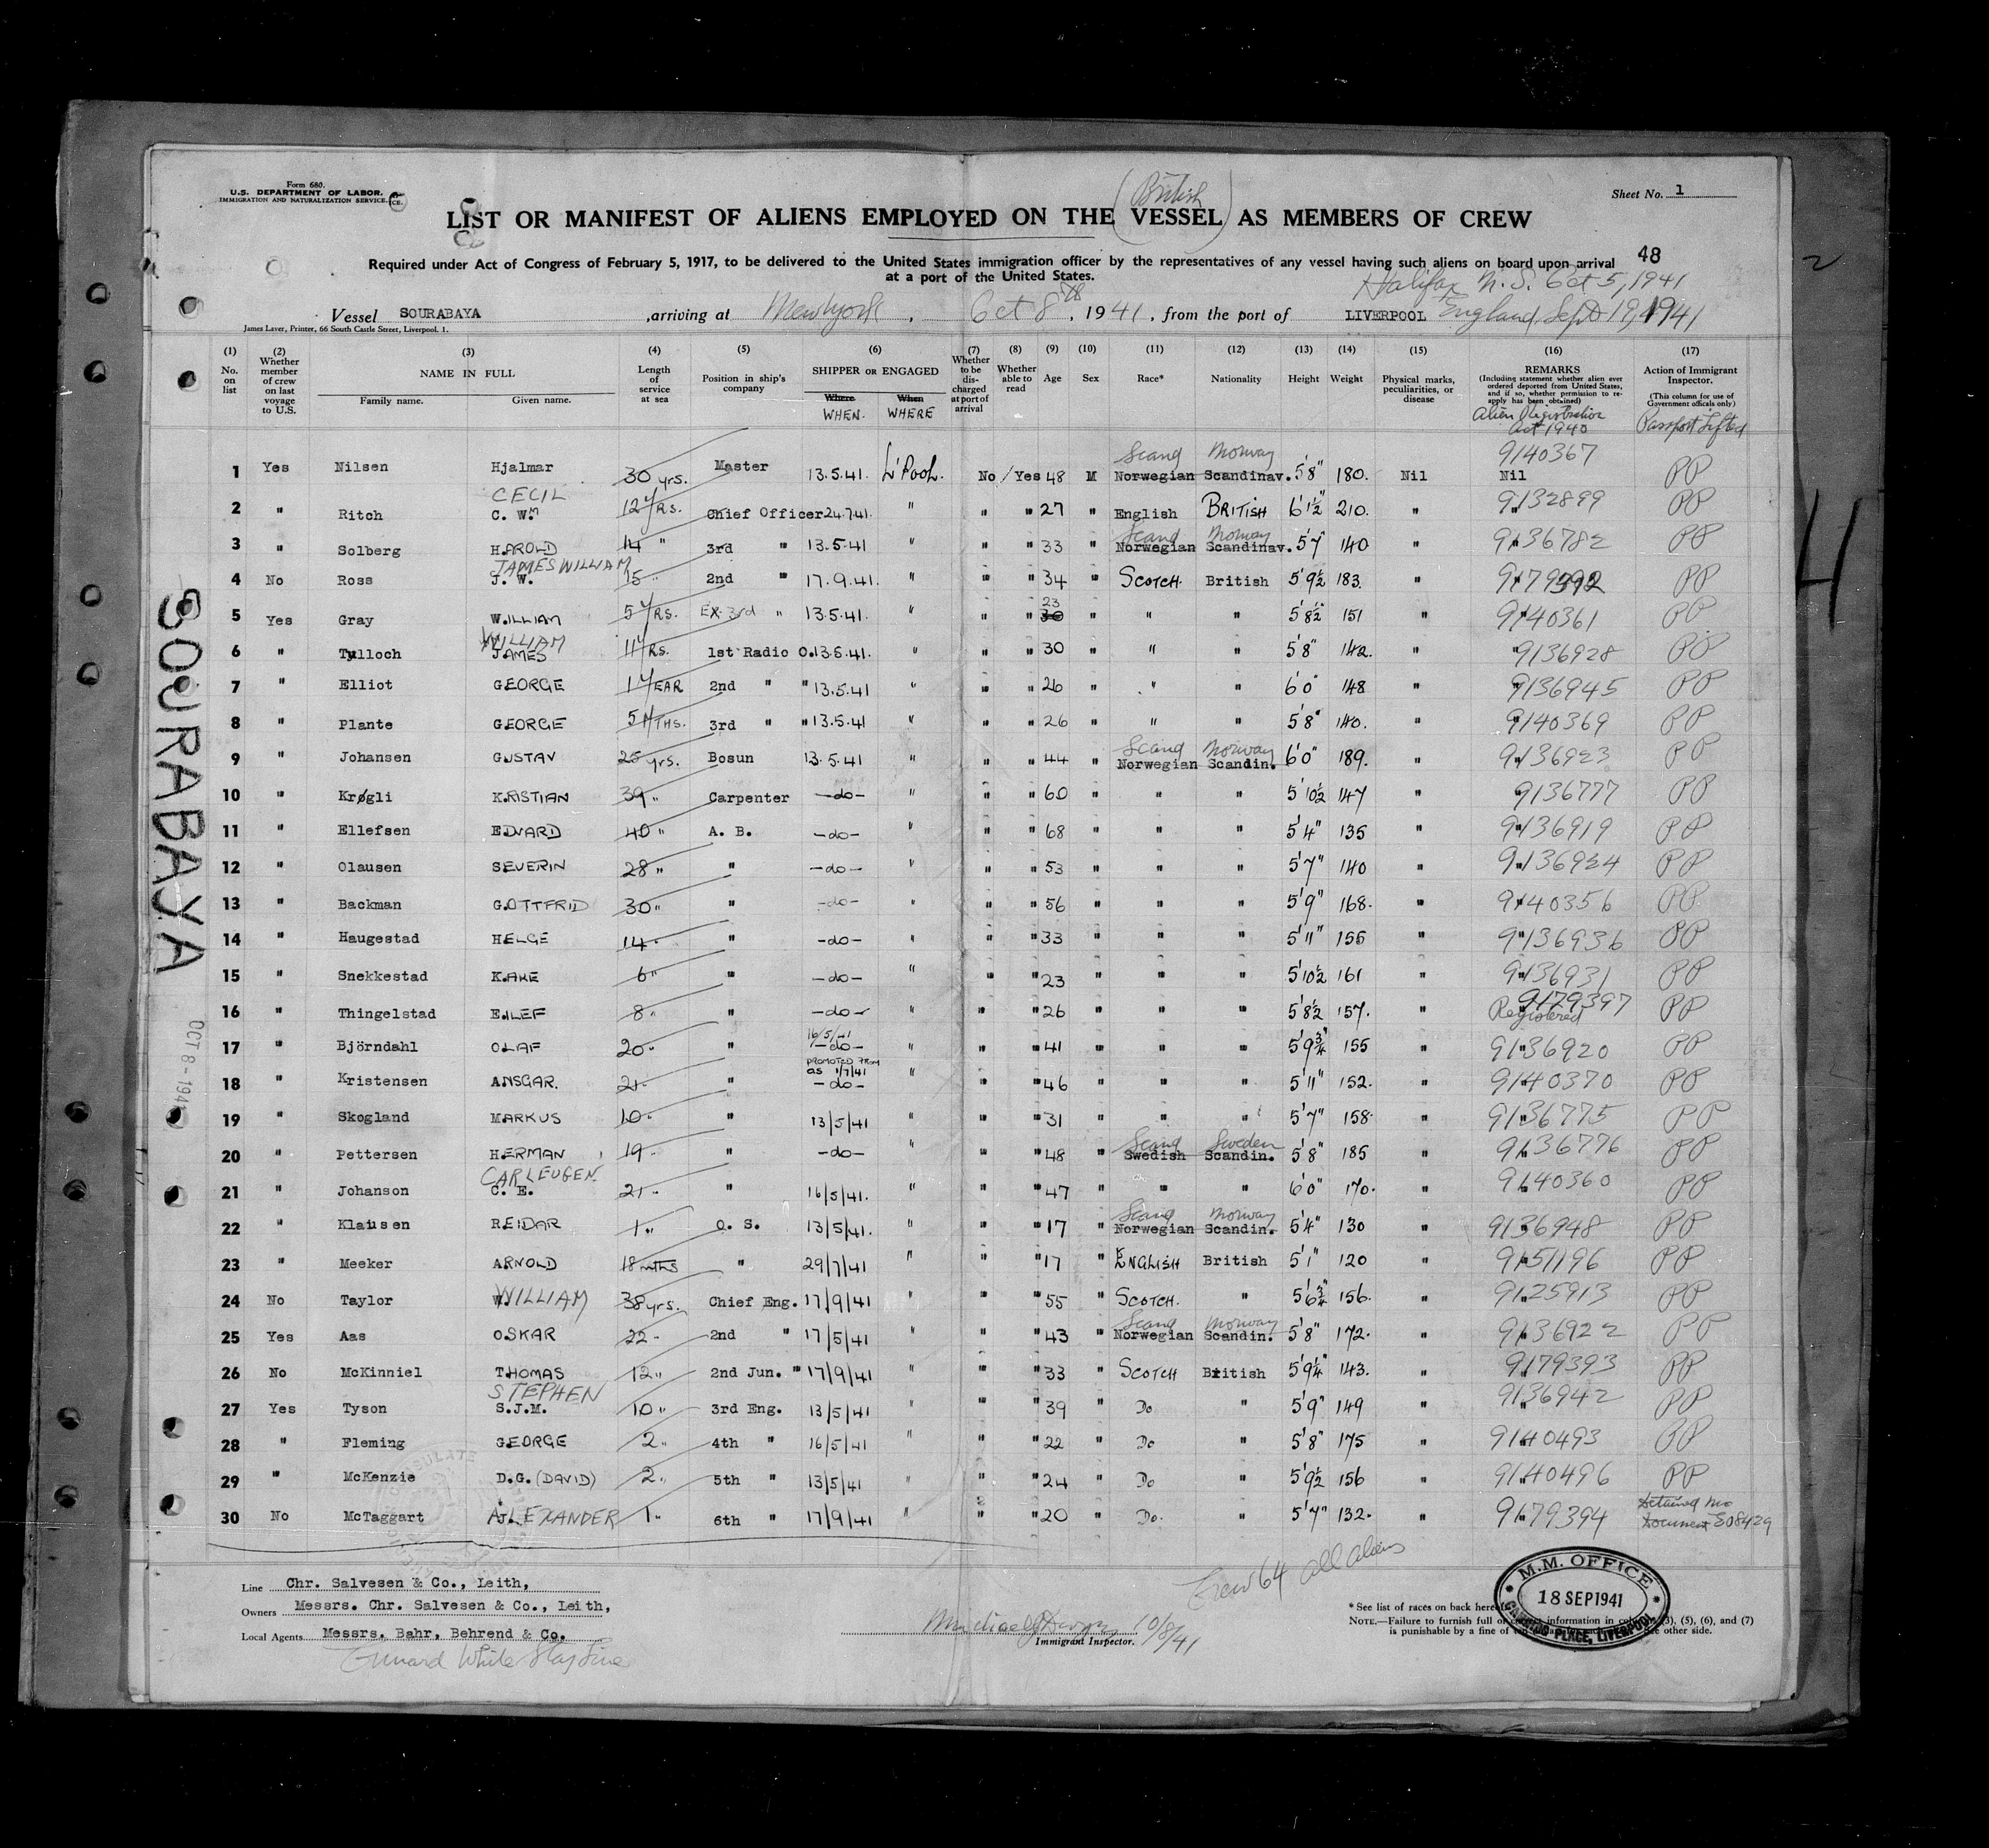 Form 680.
U.S. DEPARTMENT OF LABOR.
IMMIGRATION AND NATURALIZATION SERVICE.
Sheet No. 1
(British
LIST OR MANIFEST OF ALIENS EMPLOYED ON THE VESSEL) AS MEMBERS OF CREW
48
Required under Act of Congress of February 5, 1917, to be delivered to the United States immigration officer by the representatives of any vessel having such aliens on board upon arrival
at a port of the United States.
Halifax N.S. Oct 5, 1941
Vessel SOURABAYA ,arriving at New York , Oct 8th , 1941, from the port of LIVERPOOL England Sept 19, 1941
James Laver, Printer, 66 South Castle Street, Liverpool. 1.
(1) No. on list
(2) Whether member of crew on last voyage to U.S.
(3) NAME IN FULL Family name. Given name.
(4) Length of service at sea
(5) Position in ship's company
(6) SHIPPER OR ENGAGED Where When WHEN. WHERE
(7) Whether to be discharged at port of arrival
(8) Whether able to read
(9) Age
(10) Sex
(11) Race*
(12) Nationality
(13) Height
(14) Weight
(15) Physical marks, peculiarities, or disease
(16) REMARKS (Including statement whether alien ever ordered deported from United States, and if so, whether permission to re-apply has been obtained) Alien Registration Act 1940
(17) Action of Immigrant Inspector. (This column for use of Government officials only) Passport Lifted
1 Yes Nilsen Hjalmar 30 yrs. Master 13.5.41. L'POOL. No / Yes 48 M Norwegian Scand Scandinav. Norway 5'8" 180. Nil 9140367 Nil PP
2 " Ritch C. W. CECIL Wm 12 YRS. Chief Officer 24.7.41. " " " 27 " English BRITISH 6'1½" 210. " 9132899 PP
3 " Solberg HAROLD 14 " 3rd " 13.5.41 " " " 33 " Norwegian Scand Scandinav. Norway 5'7" 140 " 9136782 PP
4 No Ross J. W. JAMES WILLIAM 15 " 2nd " 17.9.41. " " " 34 " SCOTCH. British 5'9½ 183. " 9179392 PP
5 Yes Gray WILLIAM 5 YRS. EX 3rd " 13.5.41. " " " 30 23 " " " 5'8½" 151 " 9140361 PP
6 " Tulloch WILLIAM JAMES 11 YRS. 1st Radio O. 13.5.41. " " " 30 " " " 5'8" 142. " 9136928 PP
7 " Elliot GEORGE 1 YEAR 2nd " " 13.5.41 " " " 26 " " " 6'0" 148 " 9136945 PP
8 " Plante GEORGE 5 MTHS. 3rd " " 13.5.41 " " " 26 " " " 5'8" 140. " 9140369 PP
9 " Johansen GUSTAV 25 yrs. Bosun 13.5.41 " " " 44 " Norwegian Scand Scandin. Norway 6'0" 189. " 9136923 PP
10 " Krøgli KRISTIAN 39 " Carpenter -do- " " " 60 " " " 5'10½ 147 " 9136777 PP
11 " Ellefsen EDVARD 40 " A. B. -do- " " " 68 " " " 5'4" 135 " 9136919 PP
12 " Olausen SEVERIN 28 " " -do- " " " 53 " " " 5'7" 140 " 9136924 PP
13 " Backman GOTTFRID 30 " " -do- " " " 56 " " " 5'9" 168. " 9140356 PP
14 " Haugestad HELGE 14 " " -do- " " " 33 " " " 5'11" 155 " 9136936 PP
15 " Snekkestad KARE 6 " " -do- " " " 23 " " " 5'10½ 161 " 9136931 PP
16 " Thingelstad EILEF 8 " " -do- " " " 26 " " " 5'8½ 157. " 9179397 Registered PP
17 " Björndahl OLAF 20 " " 16/5/41 -do- " " " 41 " " " 5'9¾ 155 " 9136920 PP
18 " Kristensen ANSGAR. 21 " " PROMOTED FROM as 1/7/41 -do- " " " 46 " " " 5'11" 152. " 9140370 PP
19 " Skogland MARKUS 10 " " 13/5/41 " " " 31 " " " 5'7" 158. " 9136775 PP
20 " Pettersen HERMAN 19 " " -do- " " " 48 " Swedish Scand Scandin. Sweden 5'8" 185 " 9136776 PP
21 " Johanson C. E. CARL EUGEN. 21 " " 16/5/41. " " " 47 " " " 6'0" 170. " 9140360 PP
22 " Klausen REIDAR 1 " O. S. 13/5/41. " " " 17 " Norwegian Scand Scandin. Norway 5'4" 130 " 9136948 PP
23 " Meeker ARNOLD 18 mths " 29/7/41 " " " 17 " ENGLISH British 5'1" 120 " 9151196 PP
24 No Taylor W. WILLIAM 38 yrs. Chief Eng. 17/9/41 " " 55 " SCOTCH. " 5'6¾" 156. " 9125913 PP
25 Yes Aas OSKAR 22 " 2nd " 17/5/41 " " " 43 " Norwegian Scand Scandin. Norway 5'8" 172. " 9136922 PP
26 No McKinniel THOMAS 12 " 2nd Jun. " 17/9/41 " " " 33 " SCOTCH British 5'9¼" 143. " 9179393 PP
27 Yes Tyson S.J.M. STEPHEN 10 " 3rd Eng. 13/5/41 " " " 39 " Do " 5'9" 149 " 9136942 PP
28 " Fleming GEORGE 2 " 4th " 16/5/41 " " " 22 " Do " 5'8" 175 " 9140493 PP
29 " McKenzie D.G. (DAVID) 2 " 5th " 13/5/41 " " " 24 " Do " 5'9½ 156 " 9140496 PP
30 No McTaggart ALEXANDER 1 " 6th " 17/9/41 " " " 20 " Do. " 5'7" 132. " 9179394 Detained no Document 308429
SOURABAYA
OCT 8 - 194
Crew 64 all aliens
Line Chr. Salvesen & Co., Leith,
Owners Messrs. Chr. Salvesen & Co., Leith,
Local Agents Messrs. Bahr, Behrend & Co.
Cunard White Star Line
10/8/41
Immigrant Inspector.
* See list of races on back hereof
NOTE.—Failure to furnish full or correct information in columns (3), (5), (6), and (7)
is punishable by a fine of other side.
M.M. OFFICE
18 SEP 1941
PLACE, LIVERPOOL
2
4